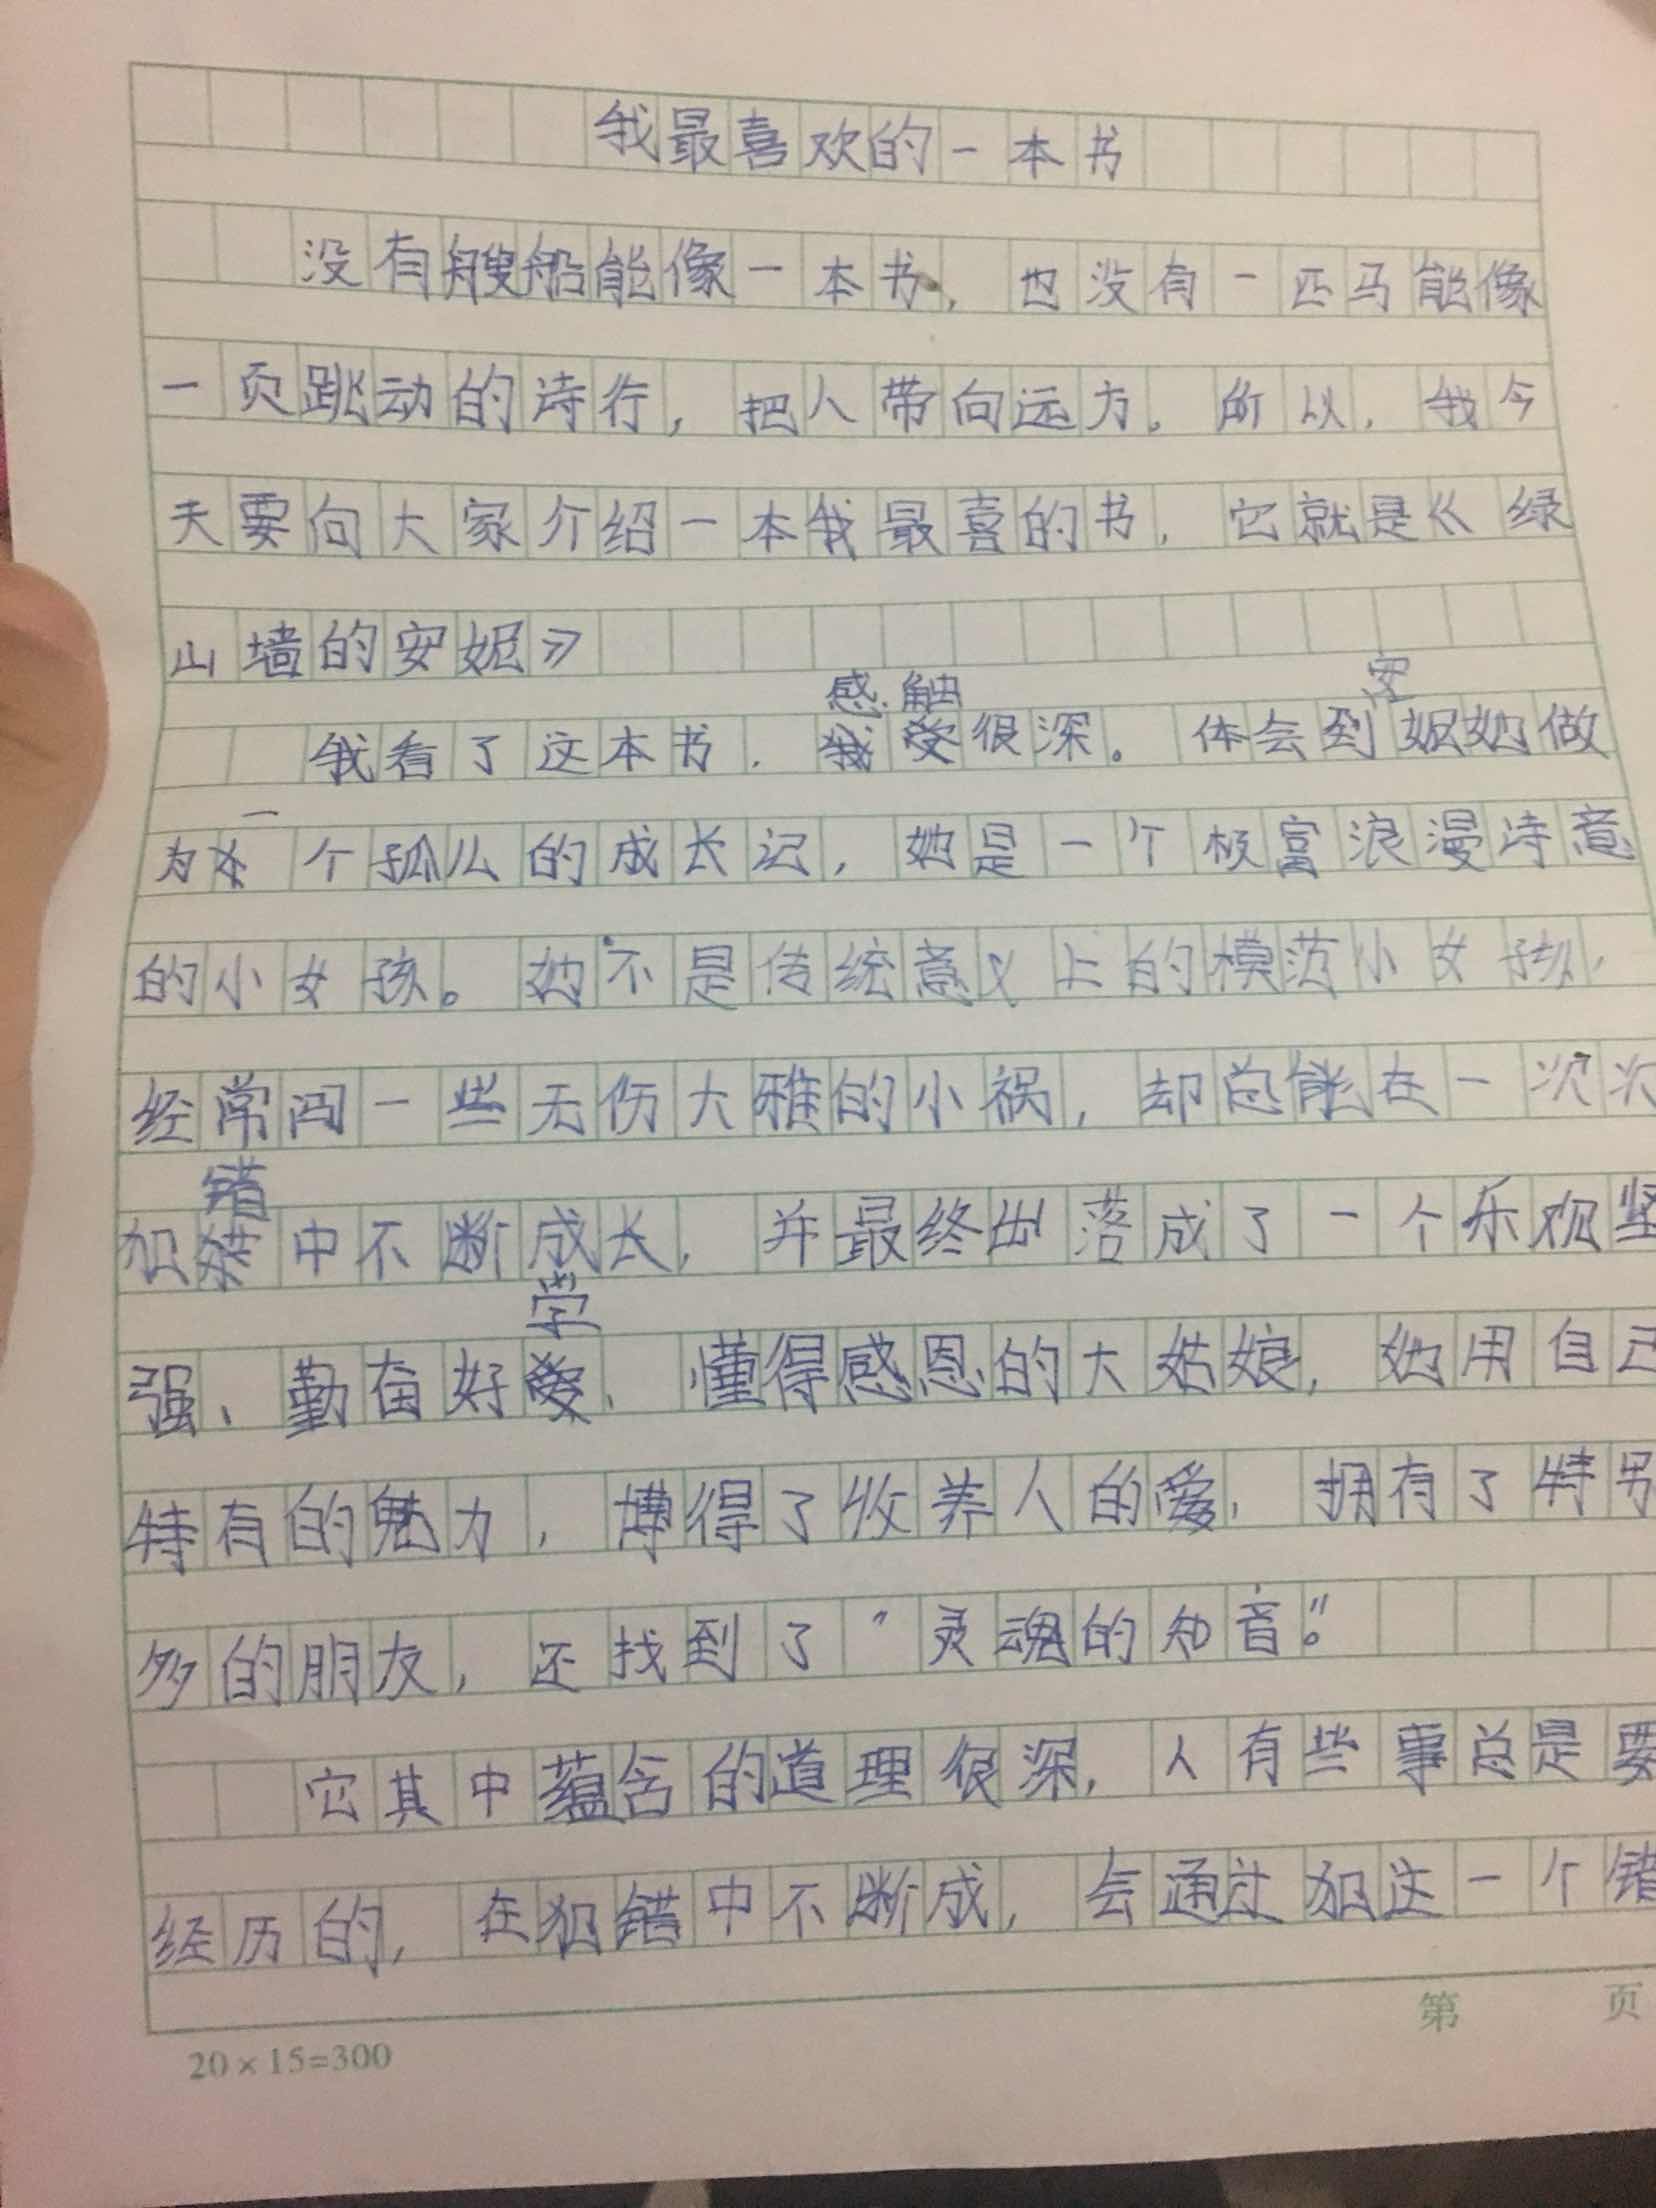 我最喜欢的一本书
没有艘船能像一本书，也没有一匹马能像
一页跳动的诗行，把人带向远方。所以，我今
天要向大家介绍一本我最喜的书，它就是《绿
山墙的安妮》
我看了这本书，感触很深。体会到安妮她做
为一个孤儿的成长记，她是一个极富浪漫诗意
的小女孩。她不是传统意义上的模范小女孩，
经常闯一些无伤大雅的小祸，却总能在一次次
犯错中不断成长，并最终出落成了一个乐观坚
强、勤奋好学、懂得感恩的大姑娘，她用自己
特有的魅力，博得了收养人的爱，拥有了特别
多的朋友，还找到了“灵魂的知音”。
它其中蕴含的道理很深，人有些事总是要
经历的，在犯错中不断成，会通过犯这一个错
第 页
20×15=300